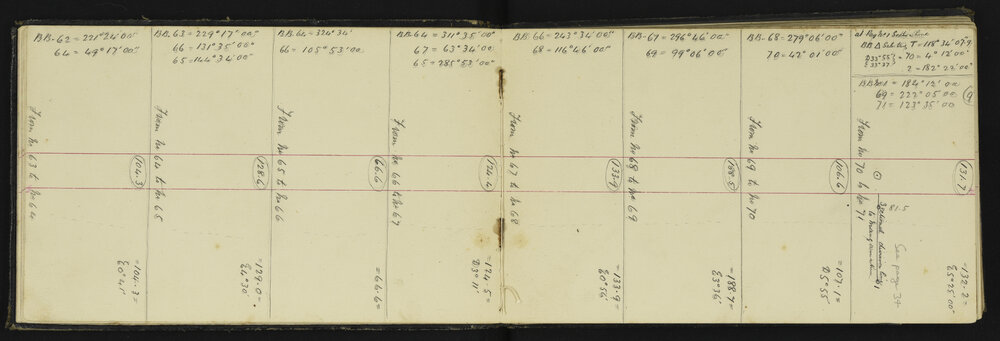 BB-62 = 221°24'00"
64 = 49°17'00"
From No 63 to No 64
104.3
= 104.3 =
E 0°41'
BB-63 = 229°17'00"
66 = 131°35'00"
65 = 144°34'00"
From No 64 to No 65
128.6
= 129.0 =
E 4°30'
BB-64 = 324°34'
66 = 105°53'00"
From No 65 to No 66
66.6
= 66.6 =
BB 64 = 311°35'00"
67 = 63°34'00"
65 = 285°53'00"
From No 66 to No 67
124.4
= 124.5 =
D 3°11'
BB 66 = 243°34'00"
68 = 116°46'00"
From No 67 to No 68
133.9
= 133.9 =
E 0°56'
BB-67 = 296°46'00"
69 = 99°06'00"
From No 68 to No 69
188.5
= 188.7 =
E 3°36'
BB-68 = 279°06'00"
70 = 42°01'00"
From No 69 to No 70
106.6
= 107.1 =
D 5°55'
at
BB Δ T = 118°34'07"
D 33°55'
E 33°37'
70 = 4°12'00"
2 = 182°22'00"
BB No 1 = 184°12'00
69 = 222°05'00
71 = 123°35'00
9
From No 70 to No 71
131.7
81.5
Second division line
See page 34
= 132.2 =
E 5°25'00"